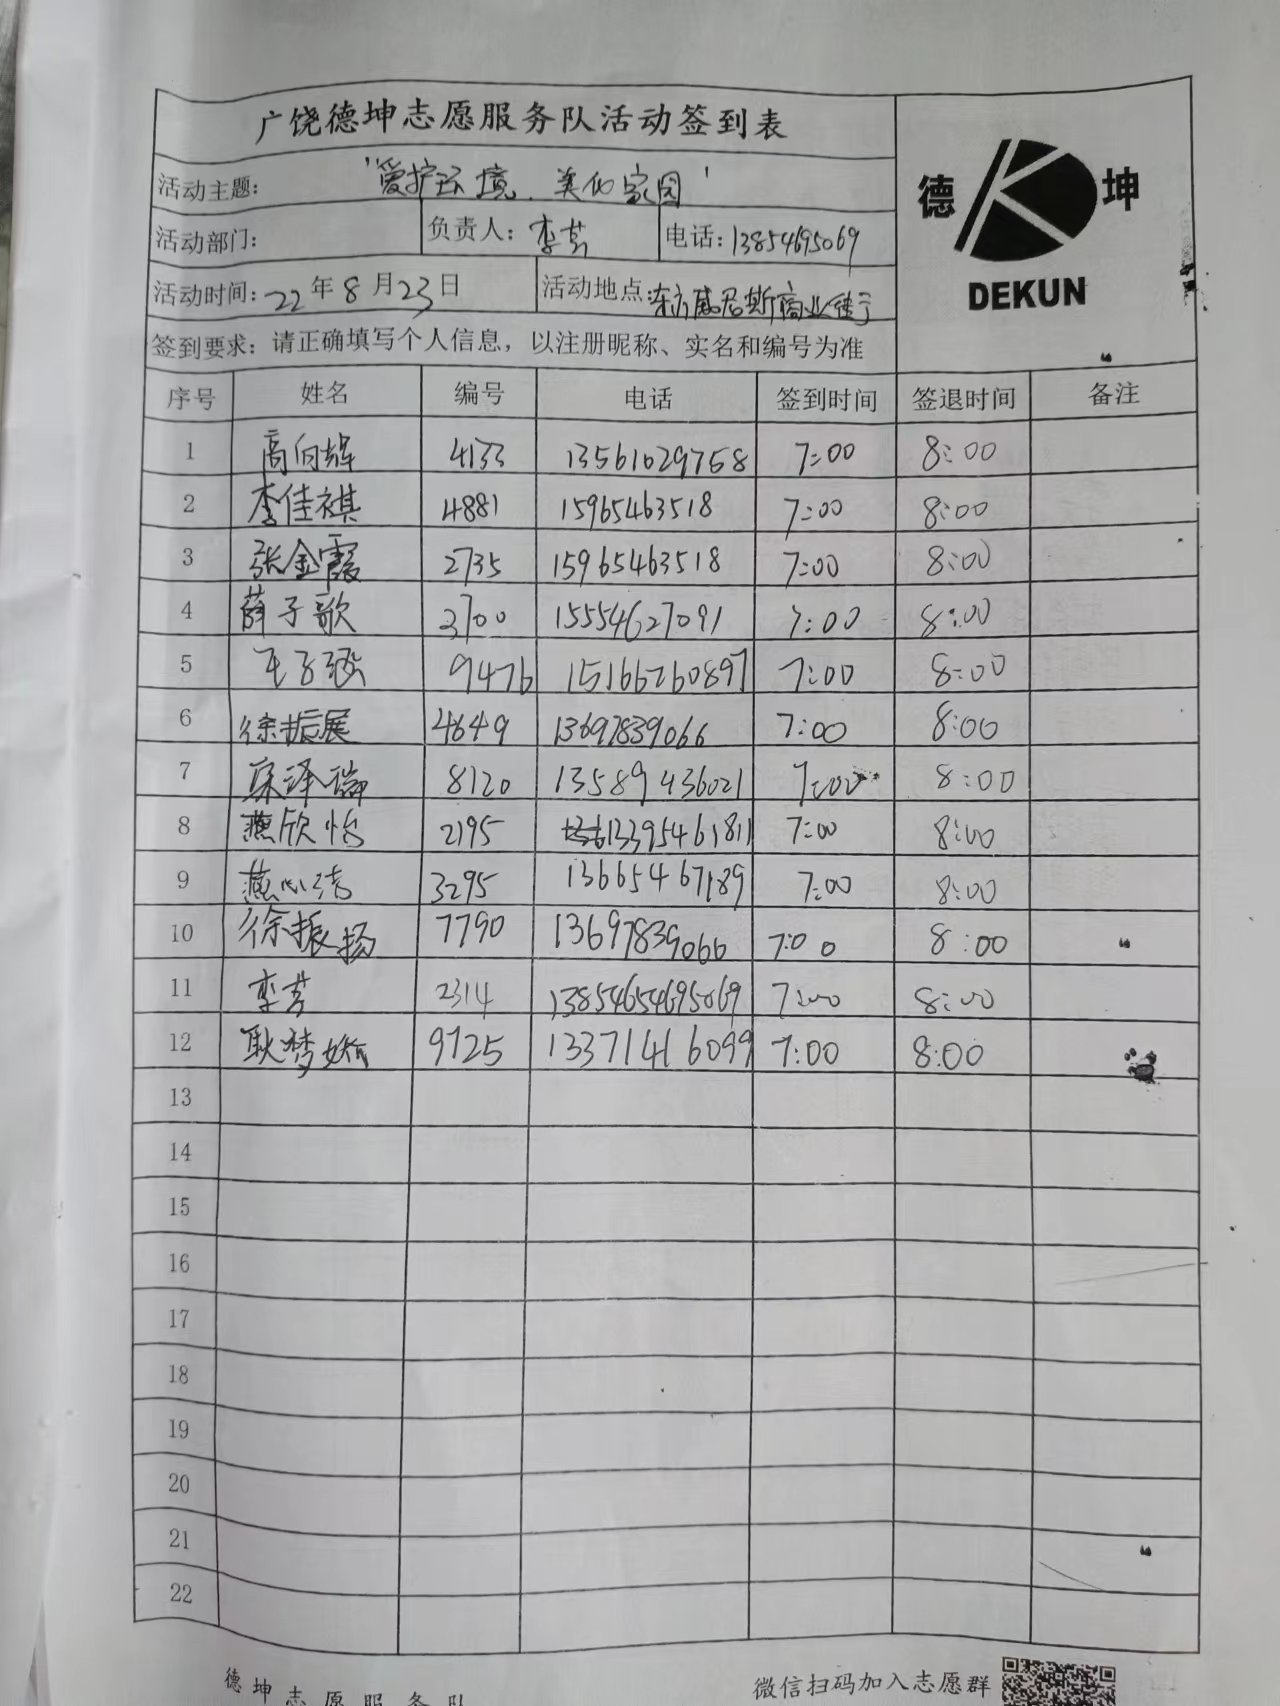 广饶德坤志愿服务队活动签到表
德 坤
DEKUN
活动主题: '爱护环境、美化家园'
活动部门: 负责人: 李芳 电话: 13854695069
活动时间: 22年8月23日 活动地点:东方威尼斯商业
签到要求: 请正确填写个人信息, 以注册昵称、实名和编号为准
序号 姓名 编号 电话 签到时间 签退时间 备注
1 高向辉 4133 13561029768 7:00 8:00
2 李佳祺 4881 15965463518 7:00 8:00
3 张金霞 2735 15965463518 7:00 8:00
4 薛子歌 3700 15554627091 7:00 8:00
5 王子涵 9476 15166260897 7:00 8:00
6 徐振展 4649 13697839066 7:00 8:00
7 泽瑞 8120 13589436021 7:00 8:00
8 燕欣怡 2195 13395461811 7:00 8:00
9 燕心洁 3295 13665467189 7:00 8:00
10 徐振扬 7790 13697839066 7:00 8:00
11 李芳 2314 13854654695069 7:00 8:00
12 耿梦娇 9725 13371416099 7:00 8:00
13
14
15
16
17
18
19
20
21
22
德坤志愿服务队 微信扫码加入志愿群